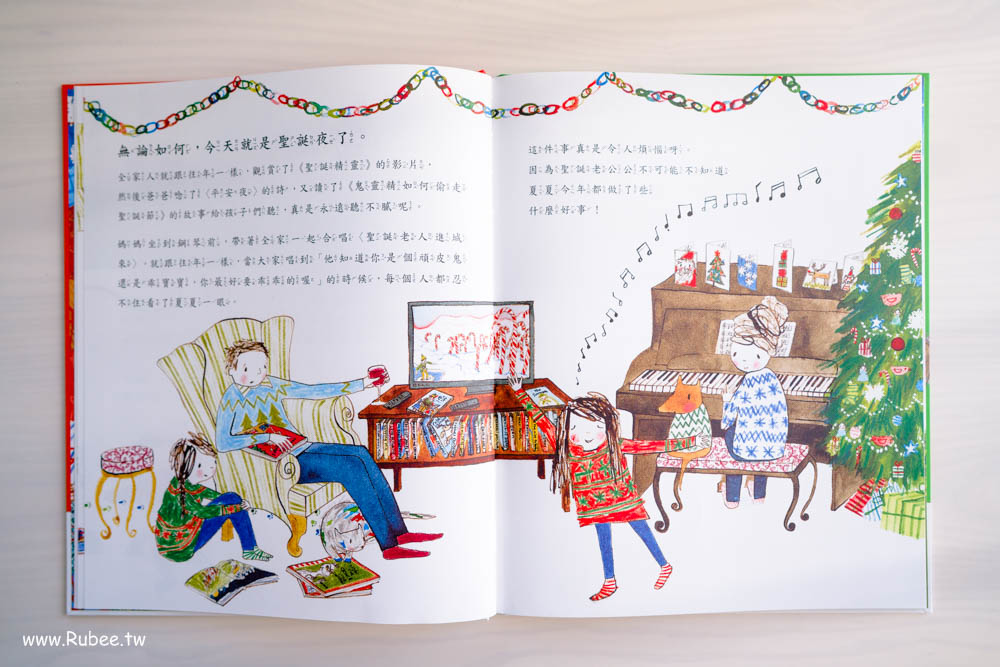 無論如何，今天就是聖誕夜了。
全家人就跟往年一樣，觀賞了《聖誕精靈》的影片，
然後爸爸唸了〈平安夜〉的詩，又讀了《鬼靈精如何偷走
聖誕節》的故事給孩子們聽，真是永遠聽不膩呢。
媽媽坐到鋼琴前，帶著全家一起合唱〈聖誕老人進城
來〉。就跟往年一樣，當大家唱到「他知道你是個頑皮鬼
還是乖寶寶，你最好要乖乖的喔。」的時候，每個人都忍
不住看了夏夏一眼。
這件事真是令人煩惱呀。
因為聖誕老公公不可能不知道
夏夏今年都做了些
什麼好事！
www.Rubee.tw